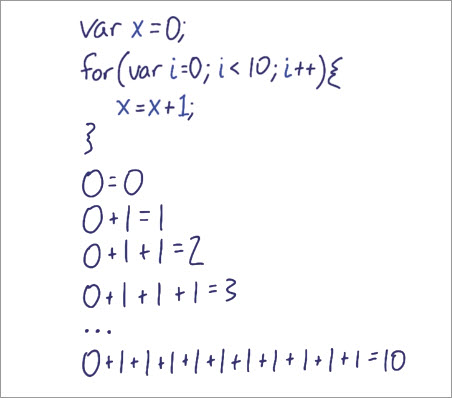 var x=0;
for(var i=0; i<10; i++){
x=x+1;
}
0=0
0+1=1
0+1+1=2
0+1+1+1=3
...
0+1+1+1+1+1+1+1+1+1+1=10